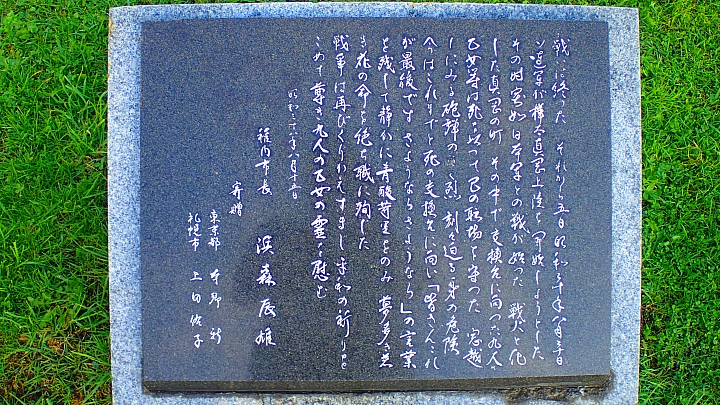 戦いは終った それから五日 昭和二十年八月二十日
ソ連軍が樺太真岡上陸を開始しようとした
その時突如日本軍との戦が始った 戦火と化
した真岡の町 その中で交換台に向った九人の
乙女等は死を以って己の職場を守った 窓越
しにみる砲弾のさく烈 刻々迫る身の危険
今はこれまでと死の交換台に向い「皆さんこれ
が最後です さようなら さようなら」の言葉
を残して静かに青酸苛里をのみ 夢多き若
き花の命を絶ち職に殉じた
戦争は再びくりかえすまじ 平和の祈りを
こめて尊き九人の乙女の霊を慰む
昭和三十八年八月十五日
稚内市長 浜森辰雄
寄贈
東京都
札幌市 上田佑子